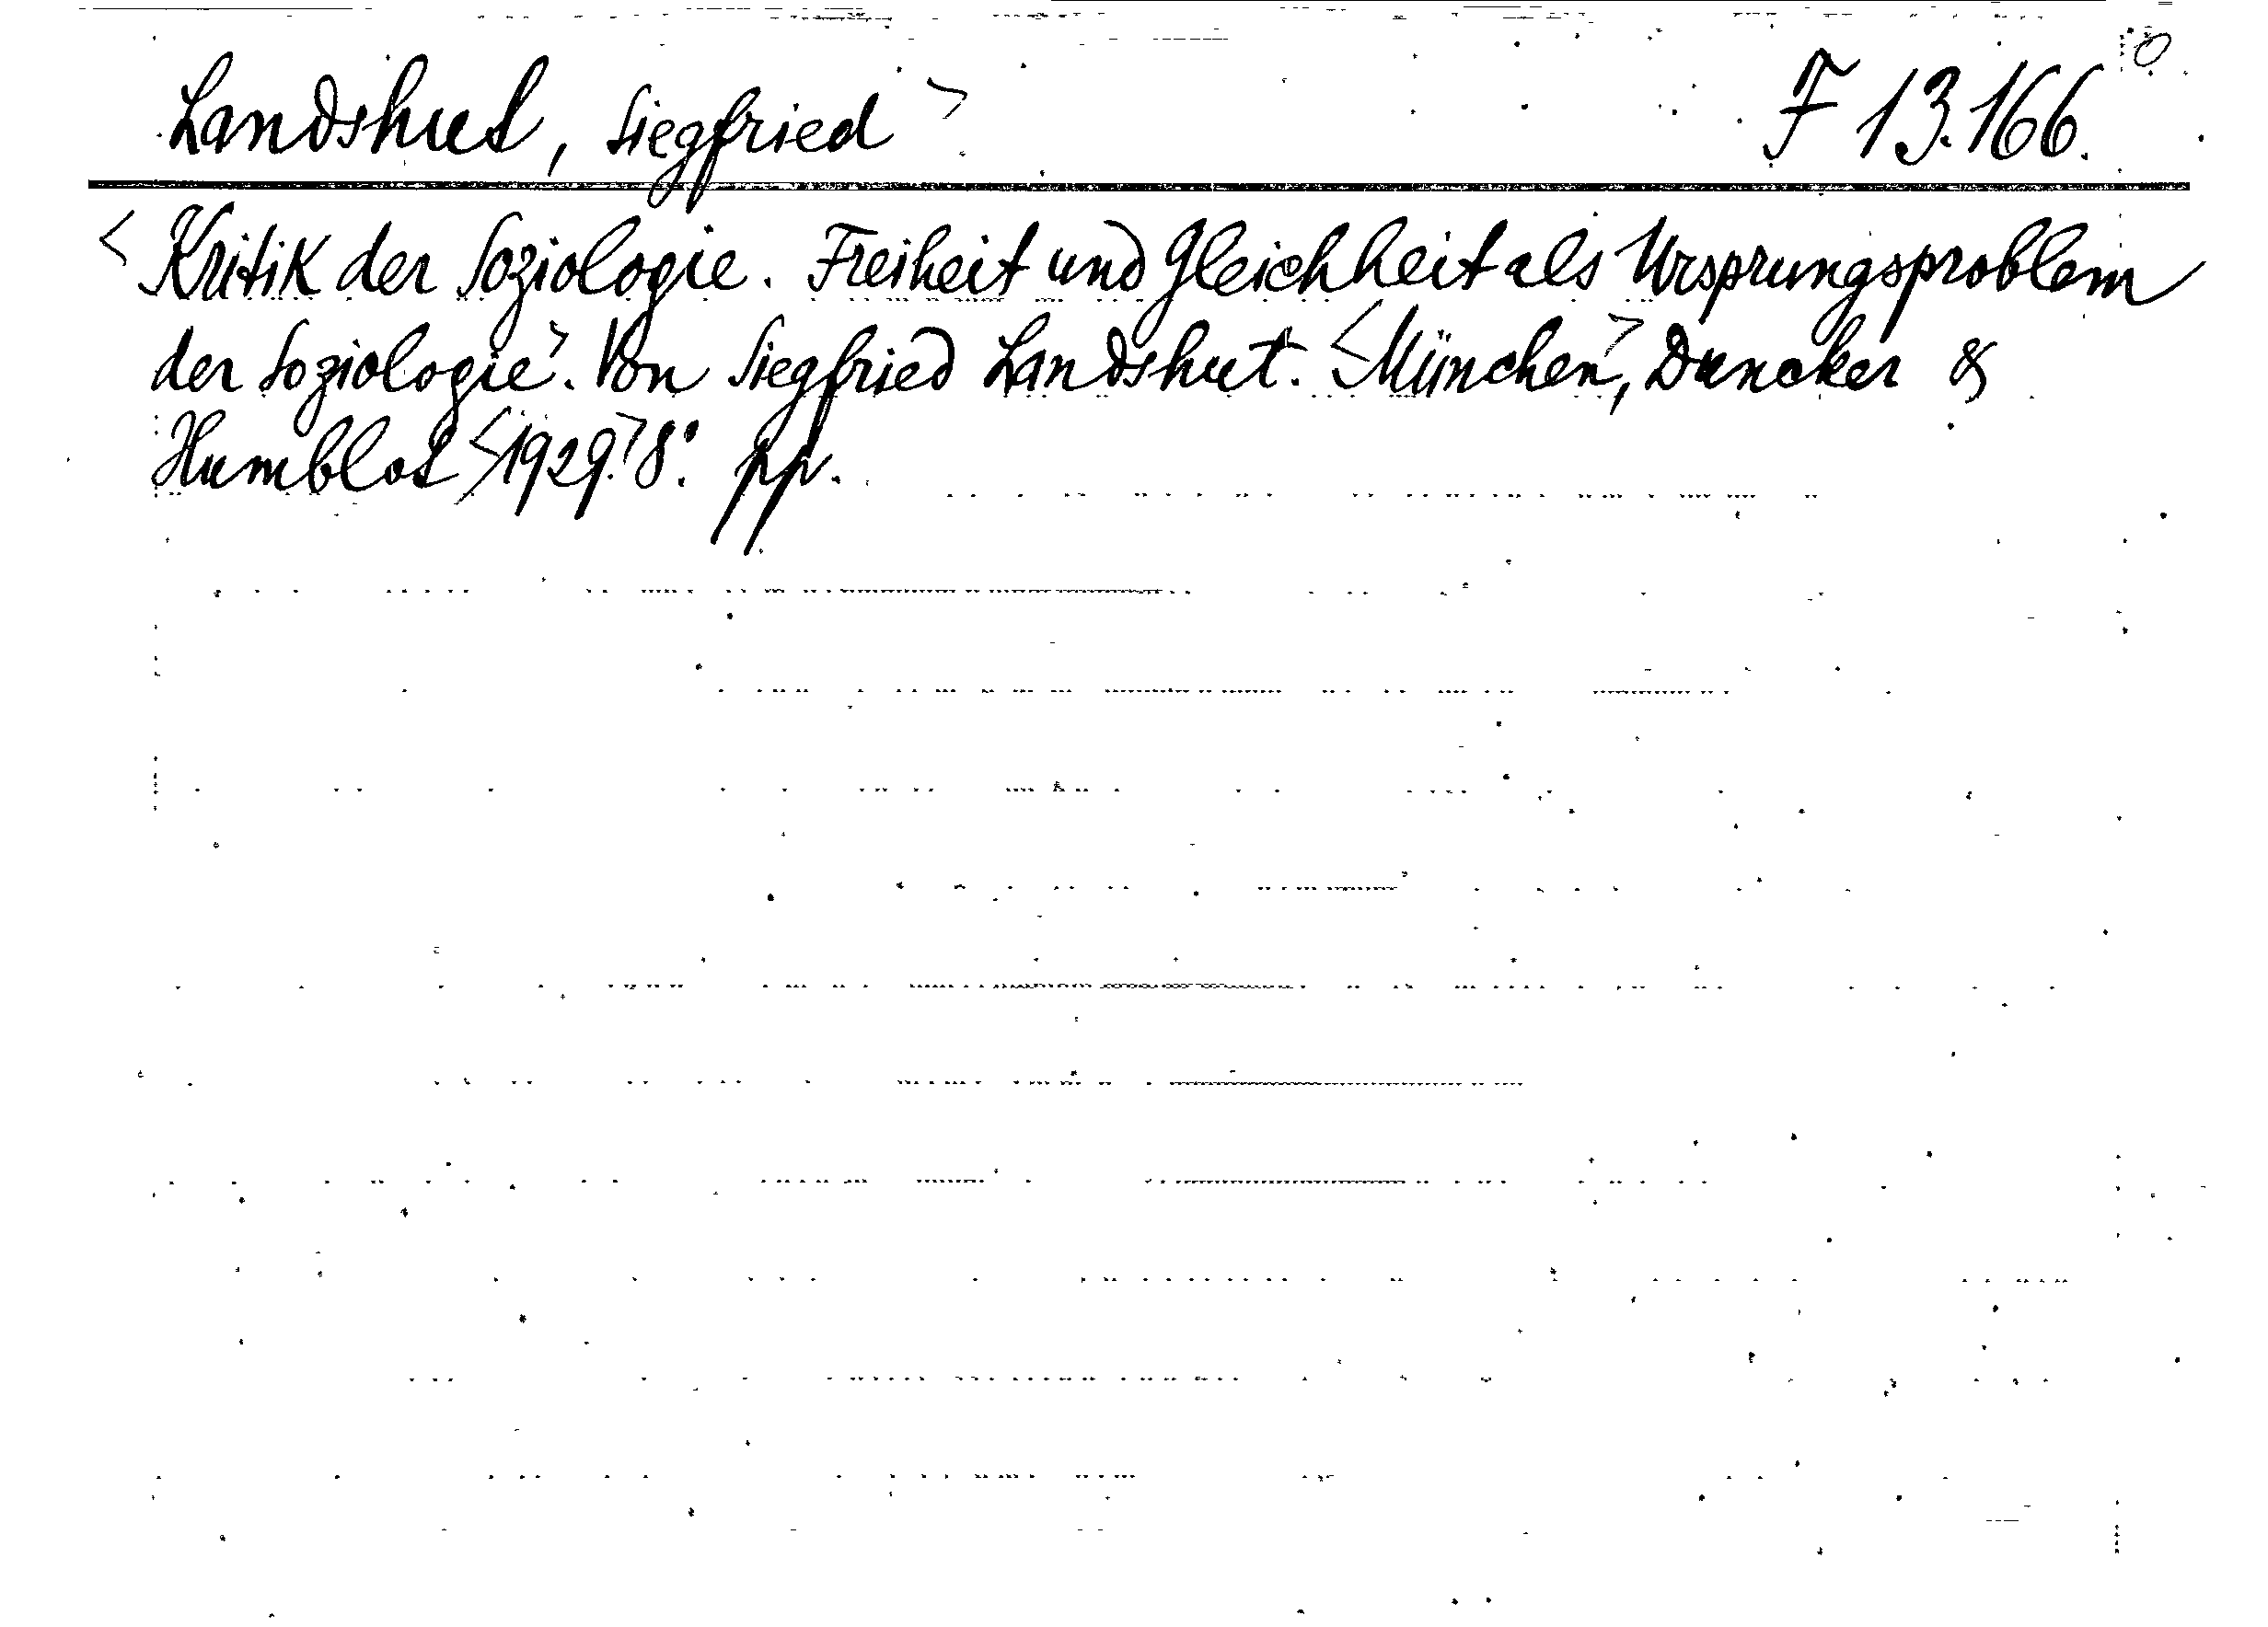 Landshut, Siegfried > F 13.166.
< Kritik der Soziologie. Freiheit und Gleichheit als Ursprungsproblem
der Soziologie>. Von Siegfried Landshut. <München>, Duncker &
Humblot <1929.> 8°. pp.